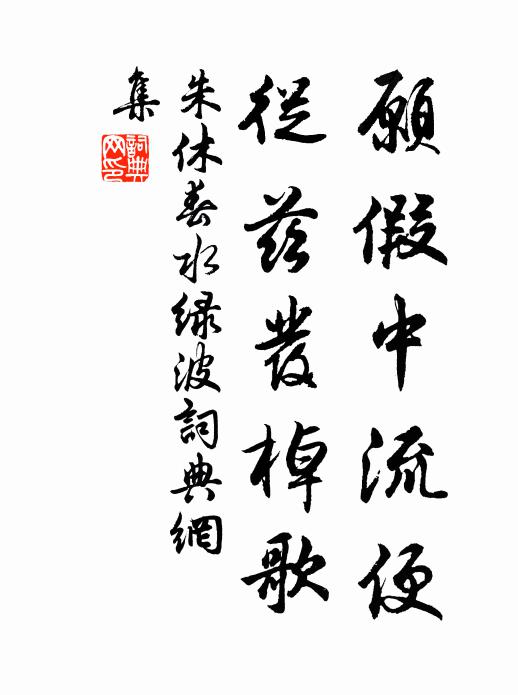 願假中流便
從茲發棹歌
朱休春水綠波詞典網
集
詞典網印